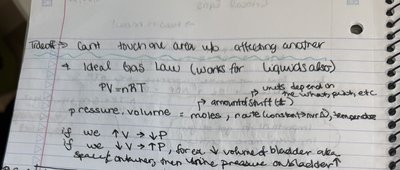 Tradeoff → Can't touch one area w/o affecting another
* Ideal Gas Law (works for liquids also)
PV=nRT → units depend on
the what, which, etc.
→ amount of stuff
pressure, volume = moles, rate (constant → nvr Δ), temperature
if we ↑V → ↓P
if we ↓V → ↑P, for ex ↓ volume of bladder aka
space of container, then urine pressure on bladder ↑